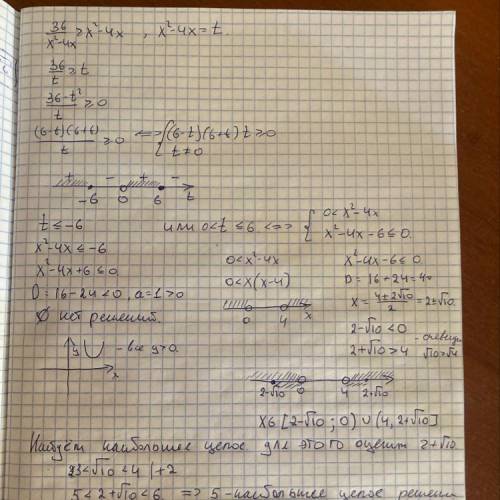 36/(x²-4x) ≥ x²-4x , x²-4x = t.
36/t ≥ t
(36-t²)/t ≥ 0
(6-t)(6+t)/t ≥ 0 <=> { (6-t)(6+t) t ≥ 0
t ≠ 0
+ - + -
-6 0 6 t
t ≤ -6 или 0 < t ≤ 6 <=> { 0 < x²-4x
x²-4x-6 ≤ 0.
x²-4x ≤ -6
x²-4x+6 ≤ 0
D = 16-24 < 0, a = 1 > 0
∅ нет решений.
y - все y > 0.
x
0 < x²-4x
0 < x(x-4)
0 4 x
x²-4x-6 ≤ 0
D = 16+24 = 40
x = (4±2√10)/2 = 2±√10.
2-√10 < 0
2+√10 > 4 - очевидн
√10 > √4
2-√10 0 4 2+√10
x ∈ [2-√10 ; 0) ∪ (4, 2+√10]
Найдем наибольшее целое. для этого оценим 2+√10.
3 < √10 < 4 | +2
5 < 2+√10 < 6 => 5 - наибольшее целое решени